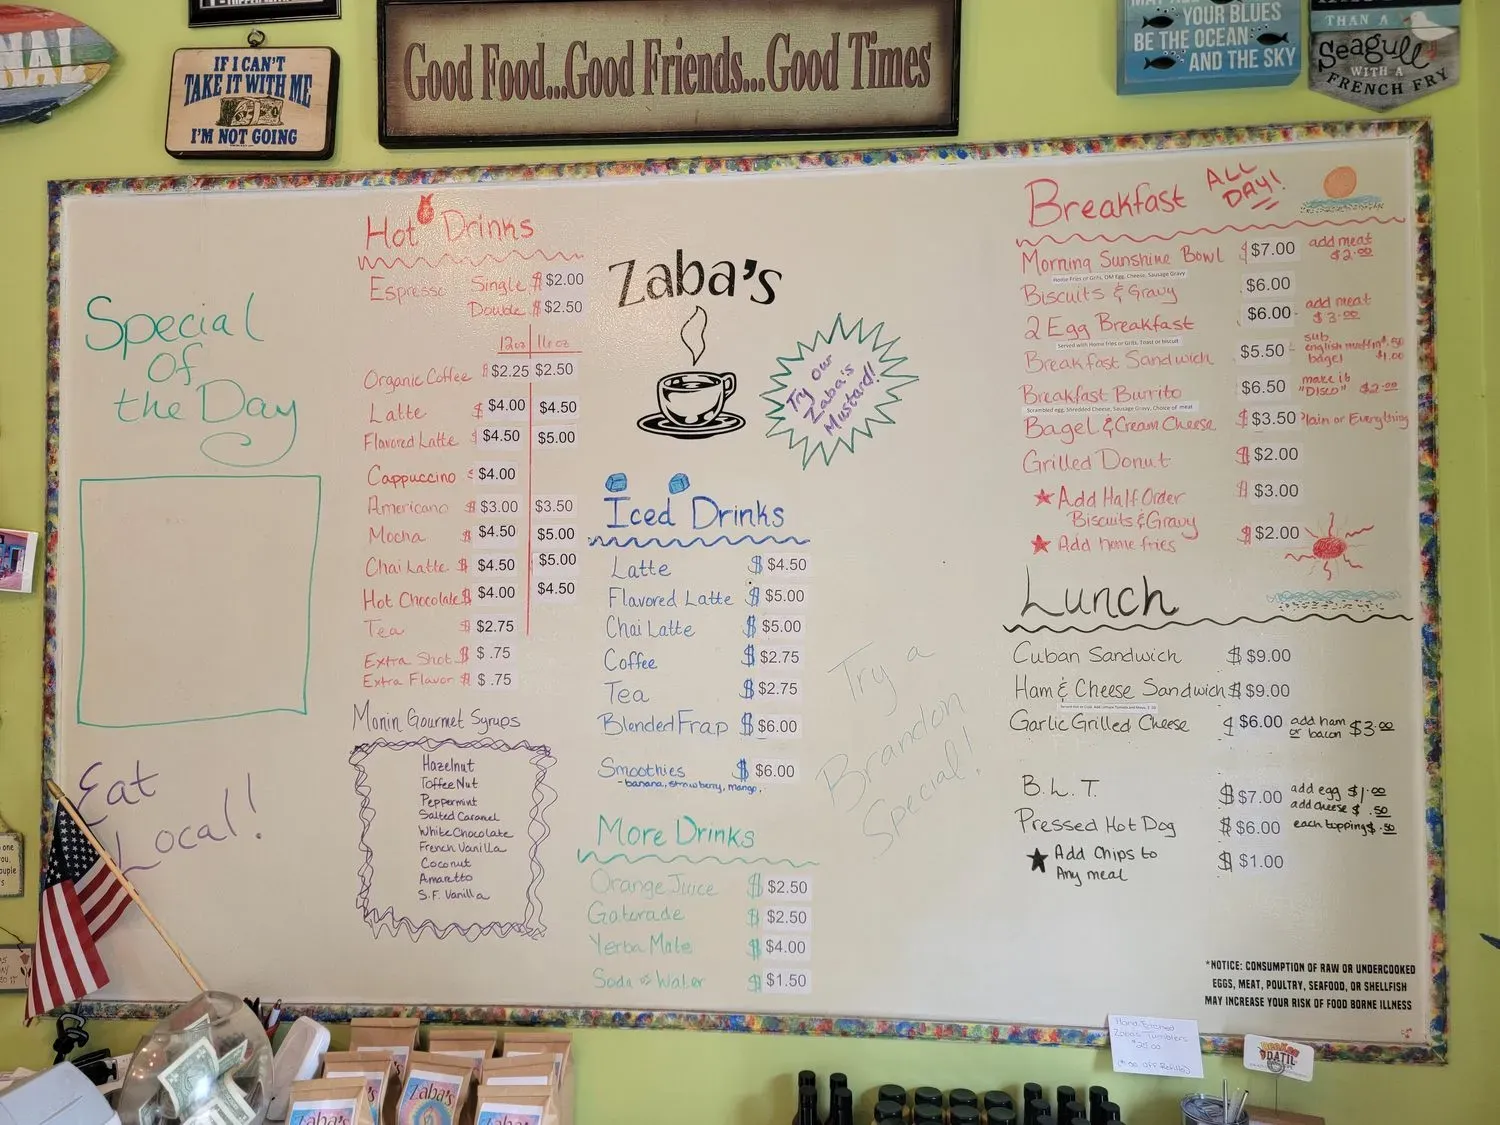 IF I CAN'T
TAKE IT WITH ME
I'M NOT GOING
Good Food...Good Friends...Good Times
YOUR BLUES
BE THE OCEAN
AND THE SKY
THAN A
Seagull
WITH A
FRENCH FRY
Special
Of
the Day
Eat
Local!
Hot Drinks
Espresso Single $ $2.00
Double $ $2.50
12oz 16oz
Organic Coffee $ $2.25 $2.50
Latte $ $4.00 $4.50
Flavored Latte $ $4.50 $5.00
Cappuccino $ $4.00
Americano $ $3.00 $3.50
Mocha $ $4.50 $5.00
Chai Latte $ $4.50 $5.00
Hot Chocolate $ $4.00 $4.50
Tea $ $2.75
Extra Shot $ $ .75
Extra Flavor $ $ .75
Monin Gourmet Syrups
Hazelnut
Toffee Nut
Peppermint
Salted Caramel
White Chocolate
French Vanilla
Coconut
Amaretto
S.F. Vanilla
Zaba's
Try our
Zaba's
Mustard!
Iced Drinks
Latte $ $4.50
Flavored Latte $ $5.00
Chai Latte $ $5.00
Coffee $ $2.75
Tea $ $2.75
Blended Frap $ $6.00
Smoothies $ $6.00
- banana, strawberry, mango,
More Drinks
Orange Juice $ $2.50
Gatorade $ $2.50
Yerba Mate $ $4.00
Soda or Water $ $1.50
Try a
Brandon
Special!
Breakfast ALL
DAY!
Morning Sunshine Bowl $ $7.00 add meat
$2.00
Home Fries or Grits, OM Egg, Cheese, Sausage Gravy
Biscuits & Gravy $6.00
2 Egg Breakfast $6.00 add meat
$3.00
Served with Home fries or Grits, Toast or biscuit
Breakfast Sandwich $5.50 - sub
english muffin $.50
bagel $1.00
Breakfast Burrito $6.50 make it
"DISCO" $2.00
Scrambled egg, Shredded Cheese, Sausage Gravy, Choice of meat
Bagel & Cream Cheese $ $3.50 Plain or Everything
Grilled Donut $ $2.00
★ Add Half Order $ $3.00
Biscuits & Gravy
★ Add home fries $ $2.00
Lunch
Cuban Sandwich $ $9.00
Ham & Cheese Sandwich $ $9.00
Garlic Grilled Cheese $ $6.00 add ham
or bacon $3.00
B.L.T. $ $7.00 add egg $1.00
add cheese $ .50
Pressed Hot Dog $ $6.00 each topping $ .50
★ Add Chips to $ $1.00
Any meal
*NOTICE: CONSUMPTION OF RAW OR UNDERCOOKED
EGGS, MEAT, POULTRY, SEAFOOD, OR SHELLFISH
MAY INCREASE YOUR RISK OF FOOD BORNE ILLNESS
Hand Etched
Zaba's Tumblers
$25.00
DATIL
Zaba's
Zaba's